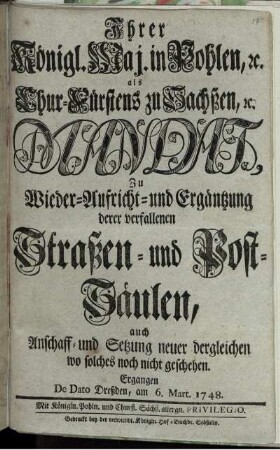 Ihrer
Königl. Maj. in Pohlen, ꝛc.
als
Chur-Fürstens zu Sachßen, ꝛc.
MANDAT,
Zu
Wieder-Aufricht- und Ergäntzung
derer verfallenen
Straßen- und Post-
Säulen,
auch
Anschaff- und Setzung neuer dergleichen
wo solches noch nicht geschehen.
Ergangen
De Dato Dreßden, am 6. Mart. 1748.
Mit Königln. Pohln. und Churfl. Sächß. allergn. PRIVILEGIO.
Gedruckt bey der verwittbt. Königln. Hof-Buchdr.